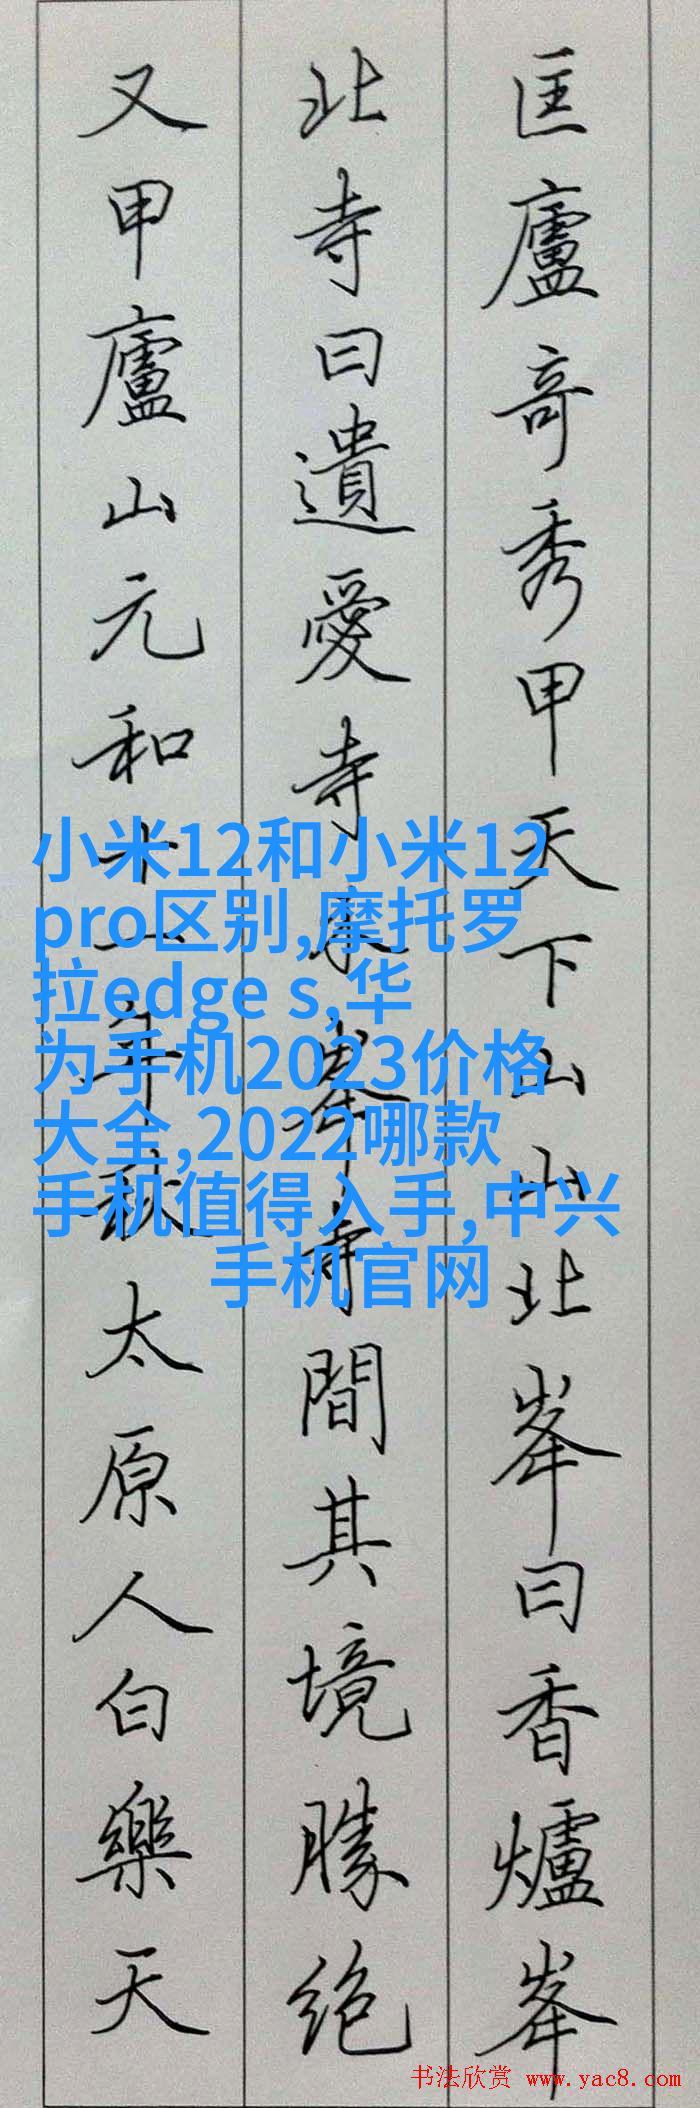 匡廬奇秀甲天下山山北峯曰香爐峯
北寺曰遺愛寺介峯寺間其境勝絶
又甲廬山元和十一年秋太原人白樂天
小米12和小米12
pro区别,摩托罗
拉edge s,华
为手机2023价格
大全,2022哪款
手机值得入手,中兴
手机官网
书法欣赏 www.yac8.com